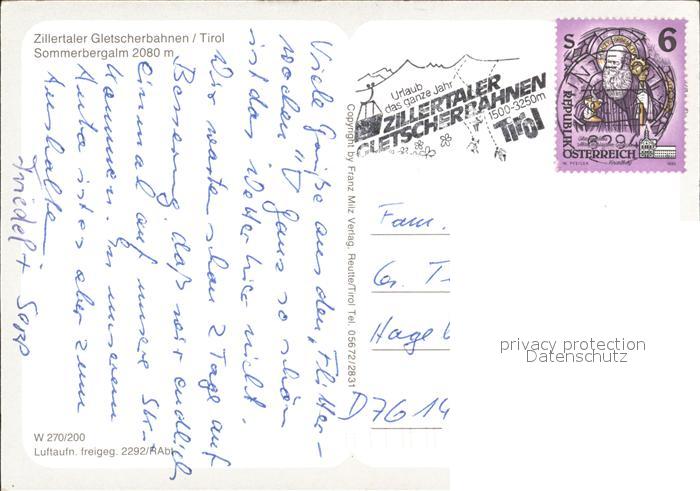 Zillertaler Gletscherbahnen / Tirol
Sommerbergalm 2080 m
Viele Grüße aus den „Flitter-
wochen". Ganz so schön
ist das Wetter hier nicht.
Wir warten schon 2 Tage auf
Besserung, daß wir endlich
einmal auf unsere Ski-
kommen. In unserem
ist es aber zum
Aushalten
Friedel +
W 270/200
Luftaufn. freigeg. 2292/RAbt
Copyright by Franz Milz Verlag, Reutte/Tirol Tel. 05672/2831
Urlaub
das ganze Jahr
ZILLERTALER
GLETSCHERBAHNEN
1500-3250m
Tirol
S 6
REPUBLIK
ÖSTERREICH
Fam.
Gr. T
Hage
D 7614
privacy protection
Datenschutz